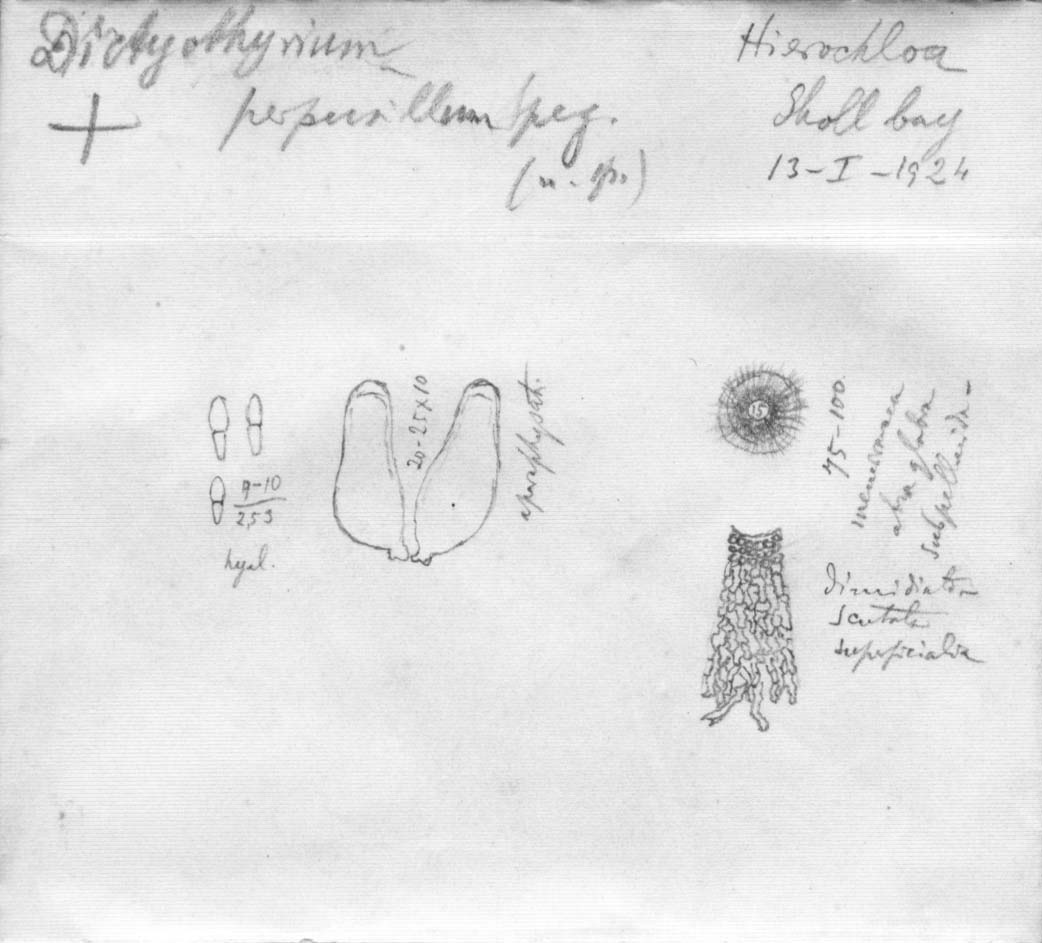 Dictyothyrium
perpusillum Speg.
(n. sp.)
Hierochloa
Sholl bay
13-I-1924
20-25x10
aparaphysat.
9-10
2,53
hyal.
15
75-100
membranacea
atra glabra
subpellucida
dimidiato
scutata
superficialia